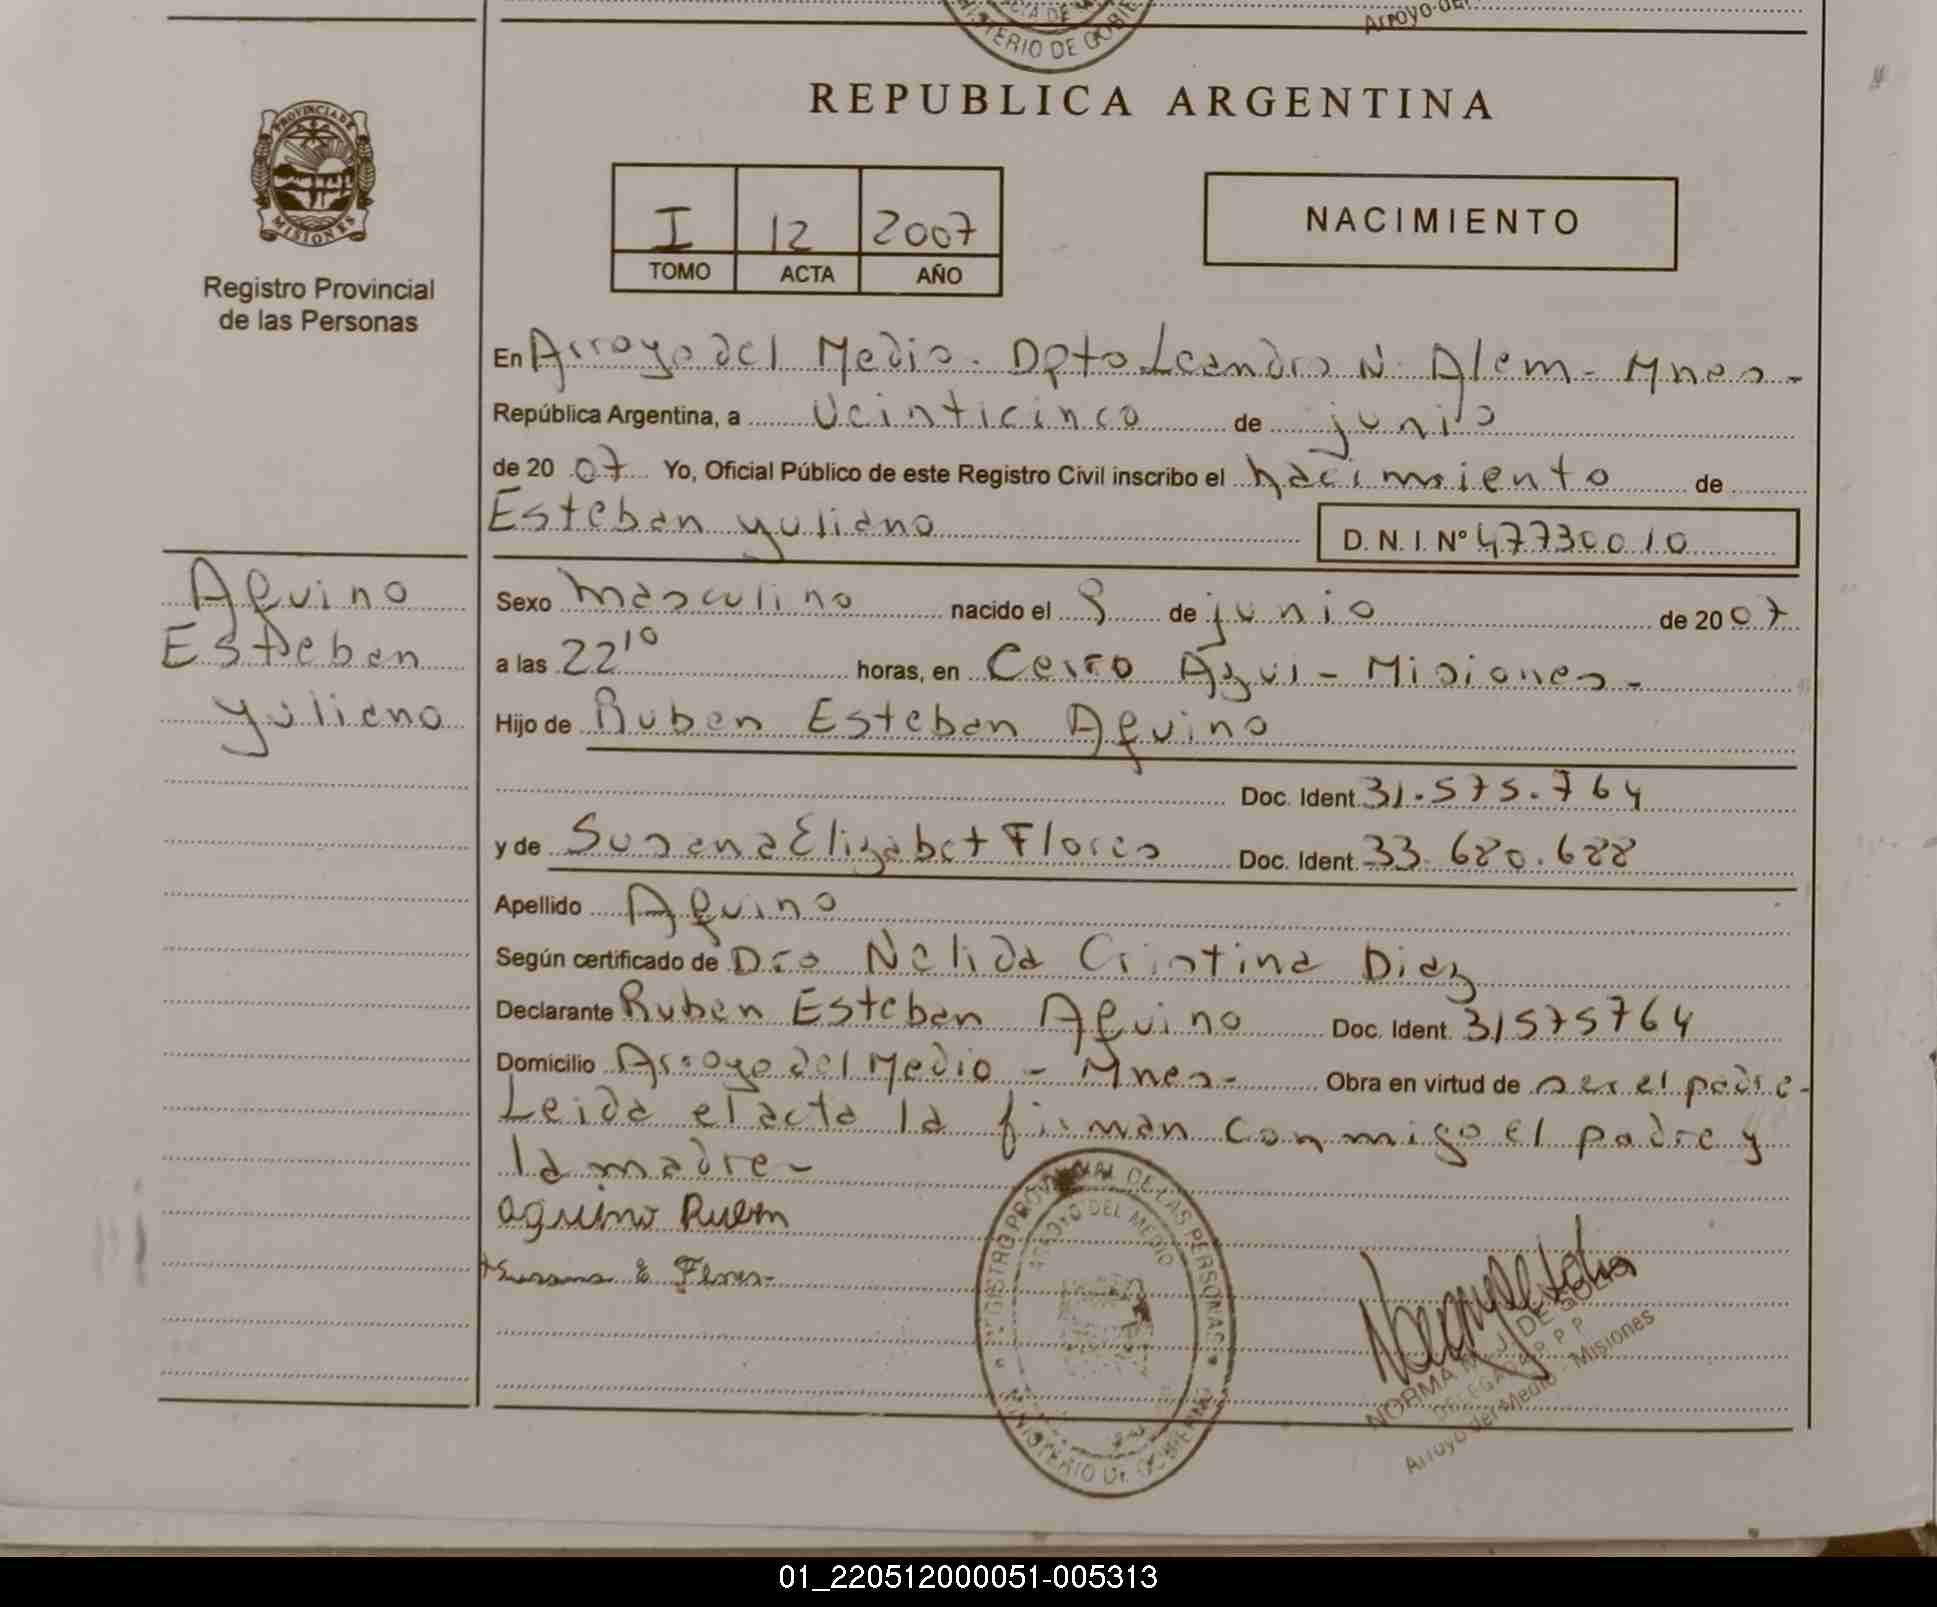 MINISTERIO DE GOBIE
Arroyo del
REPUBLICA ARGENTINA
PROVINCIA DE
MISIONES
Registro Provincial
de las Personas
I 12 2007
TOMO ACTA AÑO
NACIMIENTO
En Arroyo del Medio - Dpto Leandro N. Alem - Mnes -
República Argentina, a veinticinco de junio
de 2007 Yo, Oficial Público de este Registro Civil inscribo el nacimiento de
Esteban yuliano D. N. I. Nº 47730010
Aquino
Esteban
yuliano
Sexo masculino nacido el 9 de junio de 2007
a las 22 10 horas, en Cerro Azul - Misiones -
Hijo de Ruben Esteban Aquino
Doc. Ident. 31.575.764
y de Susana Elizabet Flores Doc. Ident. 33.680.688
Apellido Aquino
Según certificado de Dra Nélida Cristina Diaz
Declarante Ruben Esteban Aquino Doc. Ident. 31575764
Domicilio Arroyo del Medio - Mnes - Obra en virtud de ser el padre -
Leida el acta la firman conmigo el padre y
la madre -
aguino Ruben
Susana E Flores
REGISTRO PROVINCIAL DE LAS PERSONAS
ARROYO DEL MEDIO
MINISTERIO DE GOBIERNO
NORMA J. DE
DELEGADA R P P
Arroyo del Medio - Misiones
01_220512000051-005313